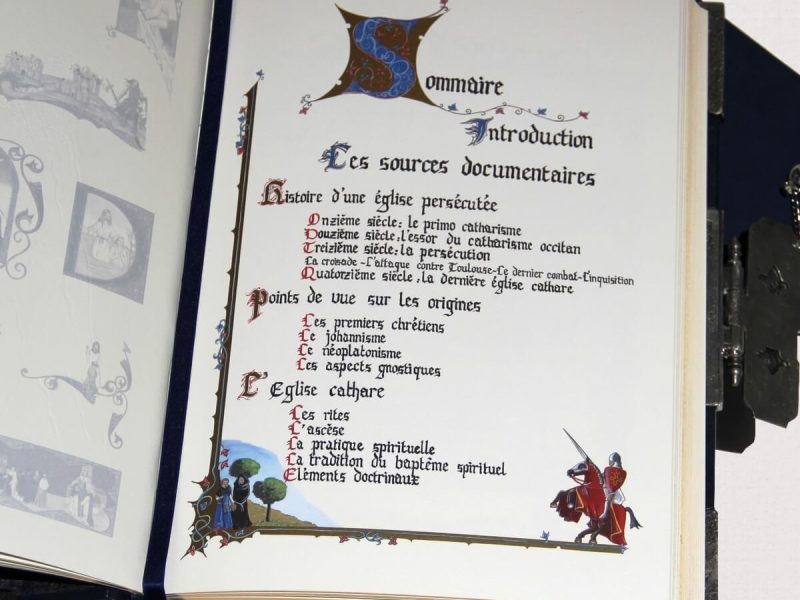 Sommaire
Introduction
Les sources documentaires
Histoire d'une église persécutée
Onzième siècle: le primo catharisme
Douzième siècle, l'essor du catharisme occitan
Treizième siècle: la persécution
La croisade - L'attaque contre Toulouse - Le dernier combat - L'inquisition
Quatorzième siècle, la dernière église cathare
Points de vue sur les origines
Les premiers chrétiens
Le johannisme
Le néoplatonisme
Les aspects gnostiques
L'Eglise cathare
Les rites
L'ascèse
La pratique spirituelle
La tradition du baptême spirituel
Eléments doctrinaux